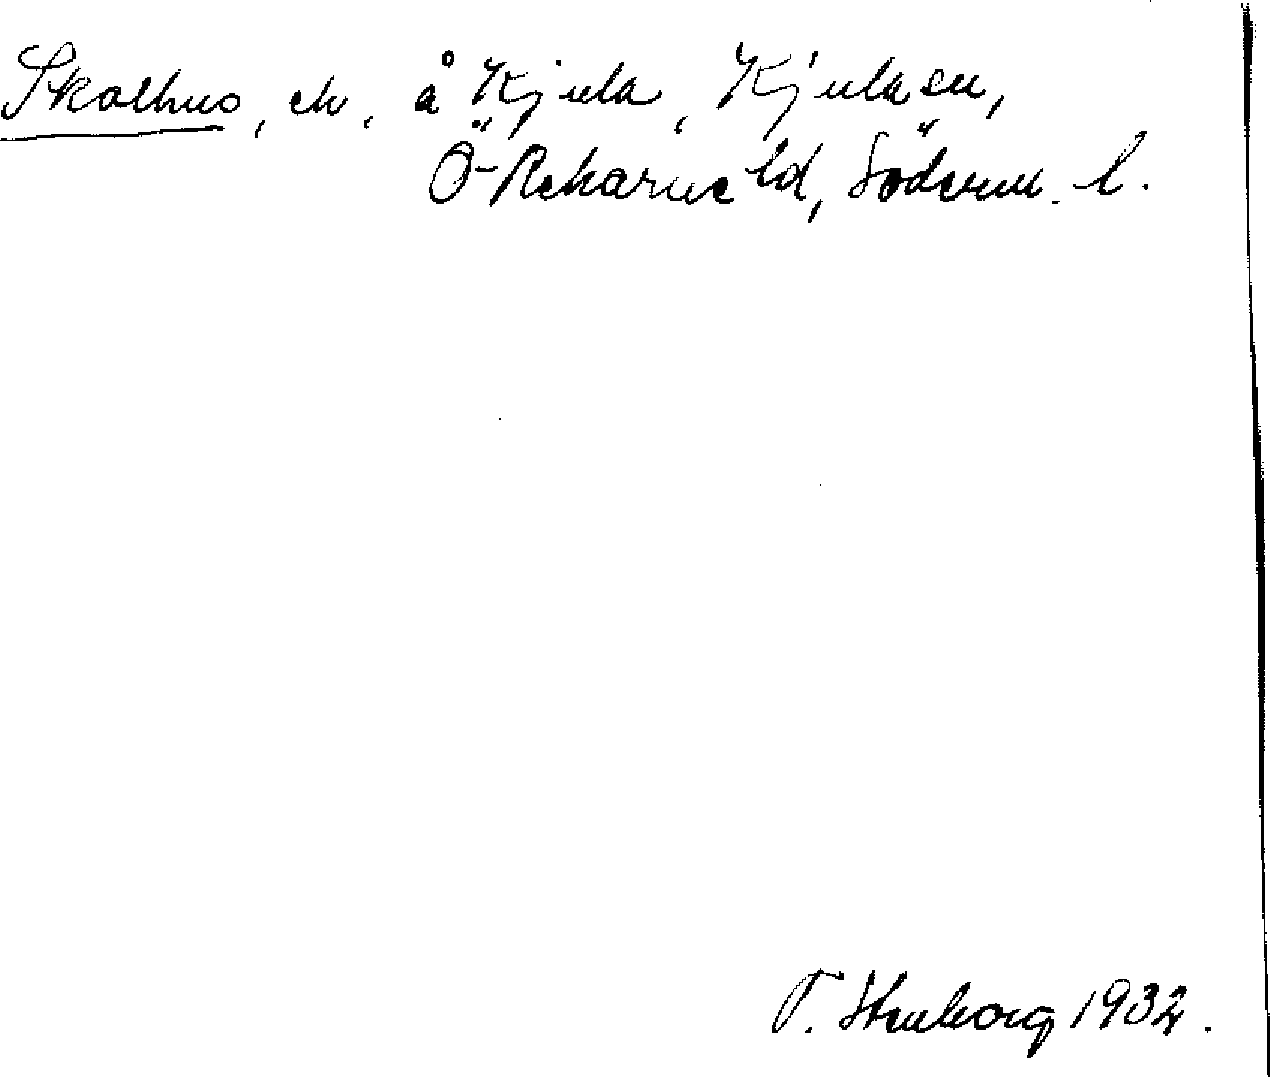 Skolhus, ek, å Kjula, Kjula sn,
Ö-Rekarne hd, Söderm. l.
T. Stenborg 1932.